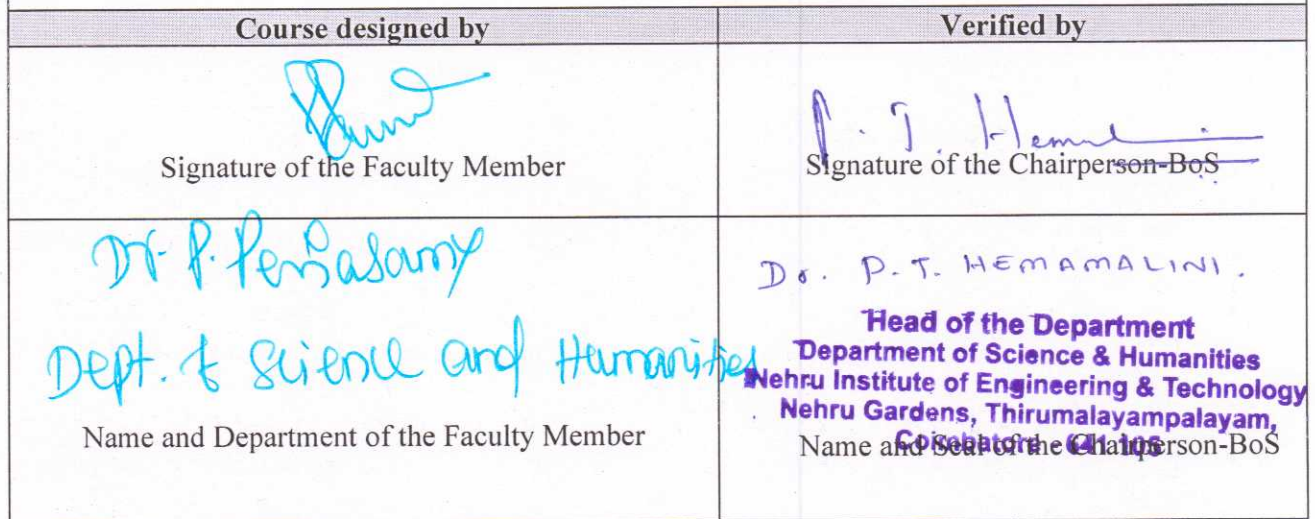 Course designed by
Verified by
P. T. Hemal
Signature of the Faculty Member
Signature of the Chairperson-BoS
Dr. P. Periasamy
Dept. of Science and Humanities
Name and Department of the Faculty Member
Dr. P.T. HEMAMALINI.
Head of the Department
Department of Science & Humanities
Nehru Institute of Engineering & Technology
Nehru Gardens, Thirumalayampalayam,
Coimbatore - 641 105
Name and Seal of the Chairperson-BoS